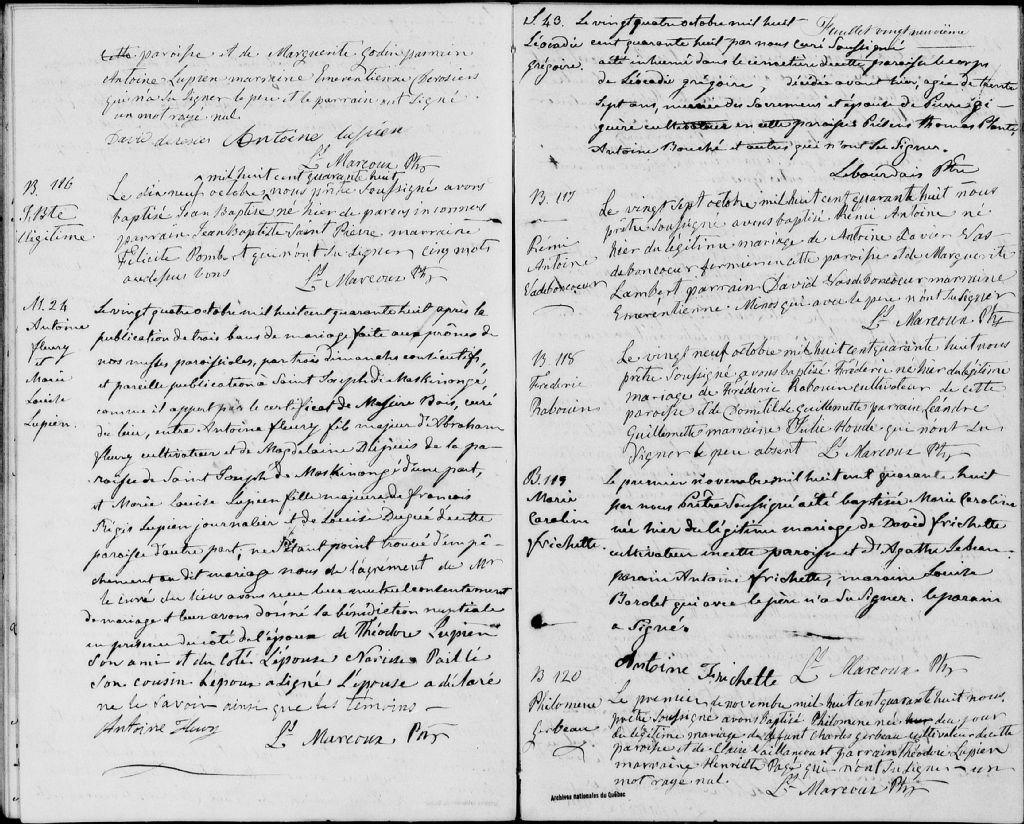 cette paroisse et de Marguerite Godin parrain
Antoine Lupien marraine Emerentienne Derosiers
qui n'a su signer le peu et le parrain ont signé
un mot rayé nul.
David derosier Antoine lupien
Ls Marcoux Ptre
B. 116
J. Bte
illégitime
mil huit cent quarante huit
Le dix neuf octobre, nous prêtre soussigné avons
baptisé Jean Baptiste né hier de parens inconnus
parrain Jean Baptiste Saint Pierre marraine
Félicité Pombert qui n'ont su signer cinq mots
au dessus bons
Ls Marcoux Ptre
M. 24
Antoine
fleury
et
Marie
Louise
Lupien.
Le vingt quatre octobre mil huit cent quarante huit après la
publication de trois bans de mariage faite aux prônes de
nos messes paroissiales, par trois dimanches consécutifs,
et pareille publication à Saint Joseph de Maskinongé,
comme il appert par le certificat de Messire Bois, curé
du lieu, entre Antoine fleury fils majeur d'Abraham
fleury cultivateur et de Magdelaine Dupuis de la pa-
roisse de Saint Joseph de Maskinongé d'une part,
et Marie Louise Lupien fille majeure de francois
Régis Lupien journalier et de Louise Dugué de cette
paroisse d'autre part, ne s'étant point trouvé d'empê-
chement au dit mariage nous de l'agrément de Mr
le curé du lieu avons reçu leur mutuel consentement
de mariage et leur avons donné la bénédiction nuptiale
en presence du côté de l'époux de Théodore Lupien
son ami et du coté L'épouse Narcisse Paillé
son cousin. L'époux a signé L'épouse a déclaré
ne le savoir ainsi que les témoins —
Antoine fleury
Ls Marcoux Ptre
Feuillet vingt neuvième
S. 43.
Léocadie
grégoire
Le vingt quatre octobre mil huit
cent quarante huit par nous curé soussigné
a été inhumé dans le cimetière de cette paroisse le corps
de Léocadie grégoire, décédée avant hier, agée de trente
sept ans, munie des Sacremens et épouse de Pierre gi-
guère cultivateur en cette paroisse Présens Thomas Plante,
Antoine Bouché et autres qui n'ont su signer.
Lebourdais Ptre
B. 117
Rémi
Antoine
Vadeboncoeur
Le vingt sept octobre mil huit cent quarante huit nous
prêtre soussigné avons baptisé Rémi Antoine né
hier du légitime mariage de Antoine Davier Vas-
deboncoeur fermier en cette paroisse et de Marguerite
Lambert parrain David Vasdeboncoeur marraine
Emerentienne Minos qui avec le pere n'ont su signer
Ls Marcoux Ptre
B. 118
Fréderic
Rabouin
Le vingt neuf octobre mil huit cent quarante huit nous
prêtre soussigné avons baptisé Fréderic né hier du légitime
mariage de Fréderic Rabouin cultivateur de cette
paroisse et de Domitilde Guillemette parrain Léandre
Guillemette marraine Julie Houde qui n'ont su
signer le pere absent Ls Marcoux Ptre
B. 119
Marie
Caroline
frichette
Le premier novembre mil huit cent quarante huit
par nous Prêtre soussigné a été baptisée Marie Caroline
née hier du légitime mariage de David frichette
cultivateur en cette paroisse et d'Agathe
parain Antoine frichette, maraine Louise
Barolet qui avec le père n'a su signer. le parain
a signé.
Antoine Frichette Ls Marcoux Ptre
B 120
Philomene
Gerbeau
Le premier de novembre mil huit cent quarante huit nous
prêtre soussigné avons baptisé Philomene née hier du jour
du légitime mariage de défunt Charles Gerbeau cultivateur de cette
paroisse et de Claire Vaillancourt parrain Théodore Lupien
marraine Henriette Pagé qui n'ont su signer — un
mot rayé nul.
Ls Marcoux Ptre
Archives nationales du Québec